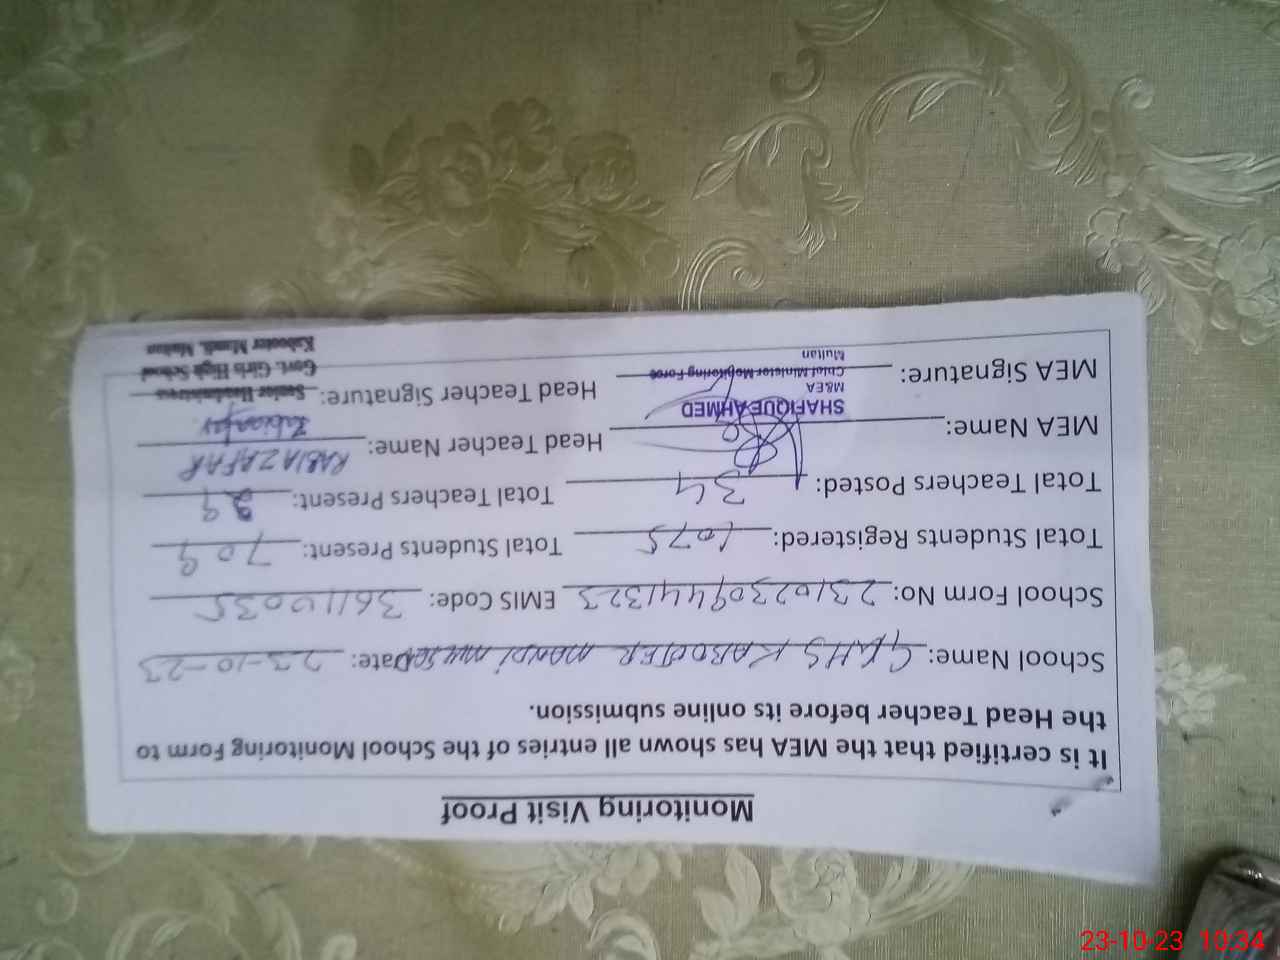 Monitoring Visit Proof
It is certified that the MEA has shown all entries of the School Monitoring Form to
the Head Teacher before its online submission.
School Name: GGHS KABOOTER MANDI Date: 23-10-23
School Form No: 23102309441323 EMIS Code: 36110035
Total Students Registered: 1075 Total Students Present: 709
Total Teachers Posted: 34 Total Teachers Present: 29
MEA Name: SHAFIQUE AHMED Head Teacher Name: RABIA ZAFAR
M&EA
Chief Minister Monitoring Force
Multan
MEA Signature: Head Teacher Signature:
Senior Headmistress
Govt. Girls High School
Kabooter Mandi, Multan
23-10-23 10:34